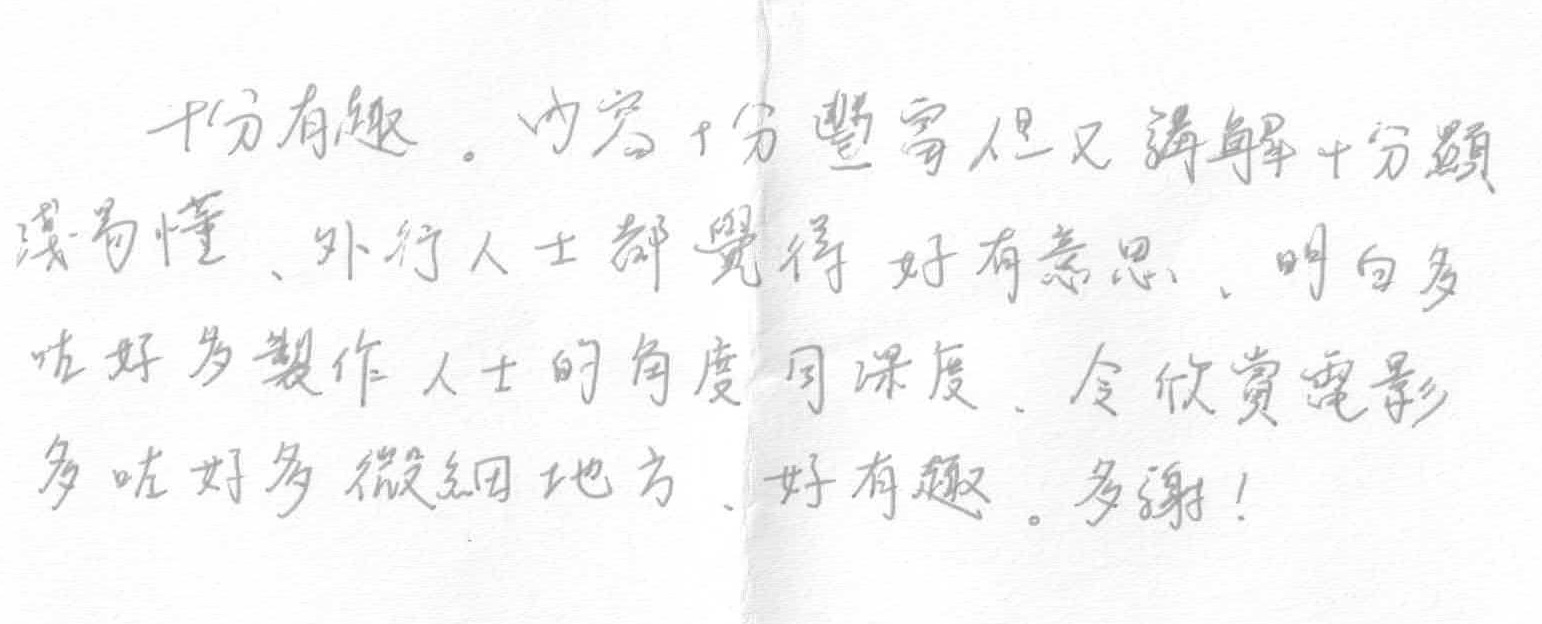 十分有趣。內容十分豐富但又講解十分顯
淺易懂、外行人士都覺得好有意思、明白多
咗好多製作人士的角度同深度、令欣賞電影
多咗好多微細地方、好有趣。多謝！